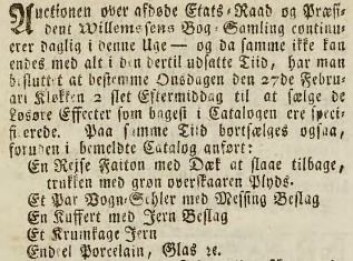 Auctionen over afdøde Etats-Raad og Præsi-
dent Willemsens Bog-Samling continu-
erer daglig i denne Uge — og da samme ikke kan
endes med alt i den dertil udsatte Tiid, har man
besluttet at bestemme Onsdagen den 27de Febru-
ari Klokken 2 slet Eftermiddag til at sælge de
Løsøre Effecter som bagest i Catalogen ere speci-
ficerede. Paa samme Tiid bortsælges ogsaa,
foruden i bemeldte Catalog anført:
En Rejse Faiton med Dæk at slaae tilbage,
trukken med grøn overskaaren Plyds.
Et Par Vogn-Sehler med Messing Beslag
En Kuffert med Jern Beslag
Et Krumkage Jern
Endeel Porcelain, Glas ꝛc.